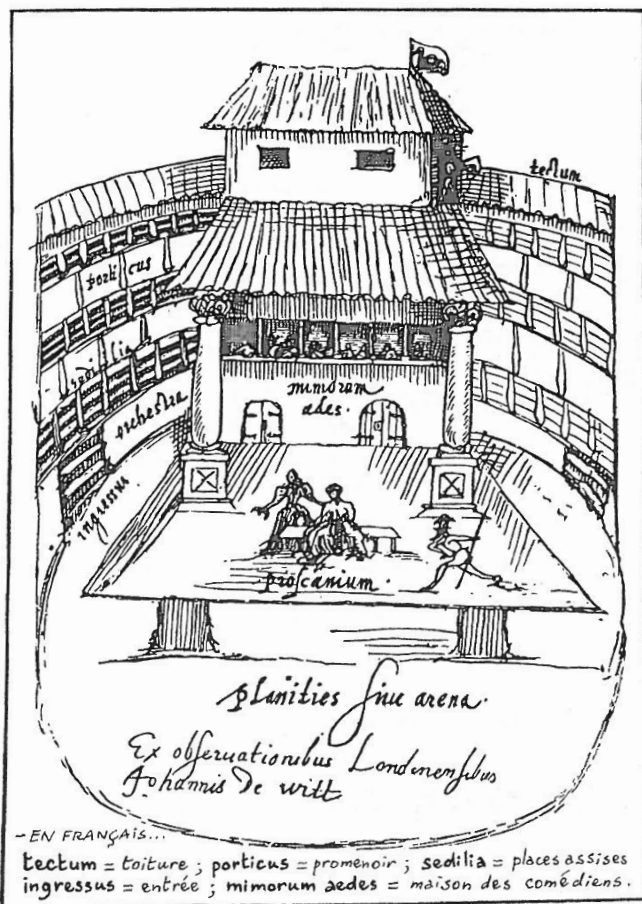 tectum
porticus
sedilia
orchestra
mimorum
ædes.
ingressus
proscænium.
planities siue arena.
Ex obseruationibus Londinensibus
Johannis De witt
- EN FRANÇAIS...
tectum = toiture ; porticus = promenoir ; sedilia = places assises
ingressus = entrée ; mimorum aedes = maison des comédiens.